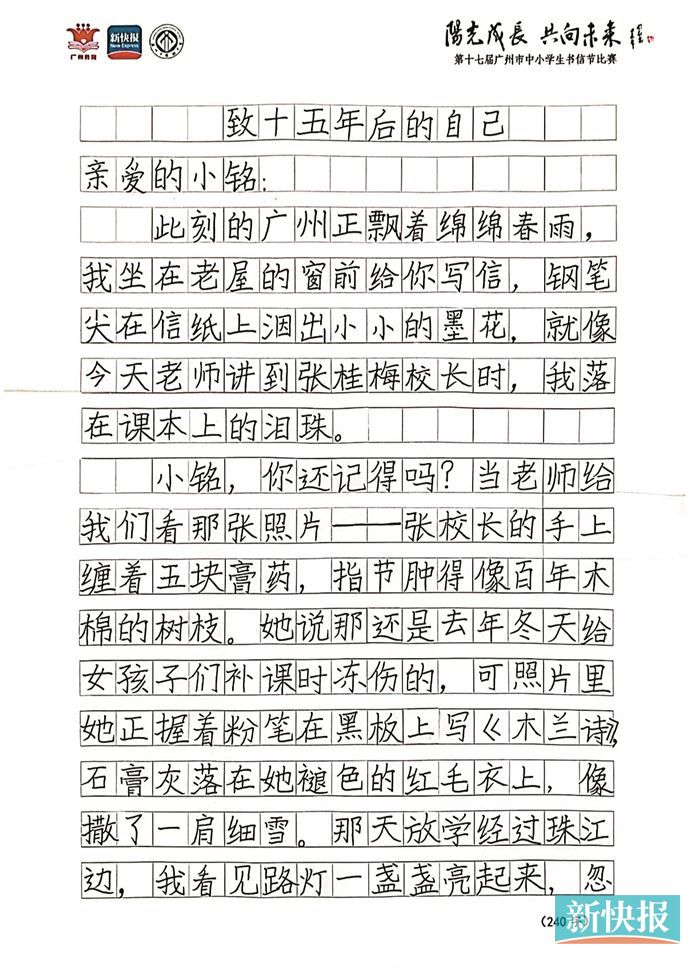 广州教育
新快报
New Express
陽光成長 共向未来
第十七届广州市中小学生书信节比赛
致十五年后的自己
亲爱的小铭：
此刻的广州正飘着绵绵春雨，
我坐在老屋的窗前给你写信，钢笔
尖在信纸上洇出小小的墨花，就像
今天老师讲到张桂梅校长时，我落
在课本上的泪珠。
小铭，你还记得吗？当老师给
我们看那张照片——张校长的手上
缠着五块膏药，指节肿得像百年木
棉的树枝。她说那还是去年冬天给
女孩子们补课时冻伤的，可照片里
她正握着粉笔在黑板上写《木兰诗》，
石膏灰落在她褪色的红毛衣上，像
撒了一肩细雪。那天放学经过珠江
边，我看见路灯一盏盏亮起来，忽
（240字）
新快报